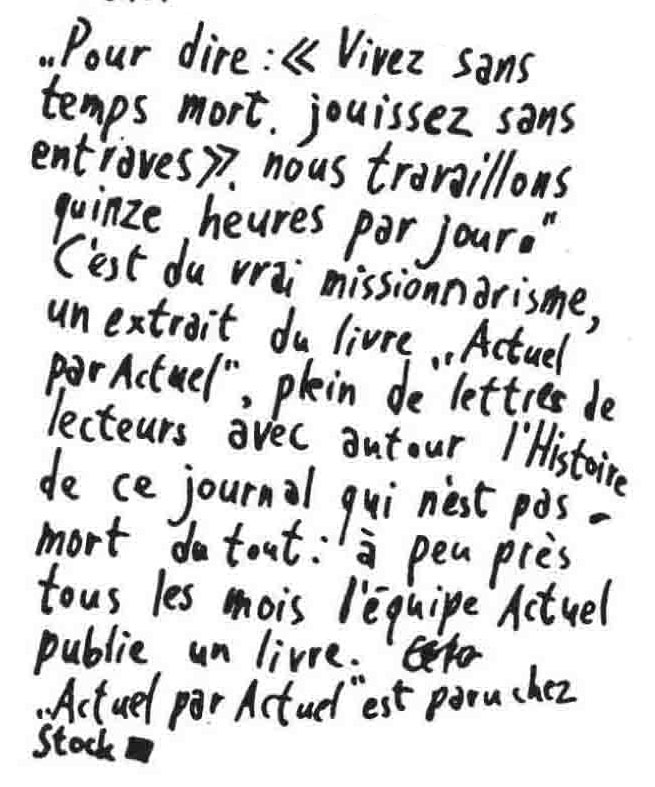 „Pour dire : « Vivez sans
temps mort. jouissez sans
entraves ». nous travaillons
quinze heures par jour."
C'est du vrai missionnarisme,
un extrait du livre „Actuel
par Actuel", plein de lettres de
lecteurs avec autour l'Histoire
de ce journal qui n'est pas -
mort du tout : à peu près
tous les mois l'équipe Actuel
publie un livre.
„Actuel par Actuel" est paru chez
Stock ■